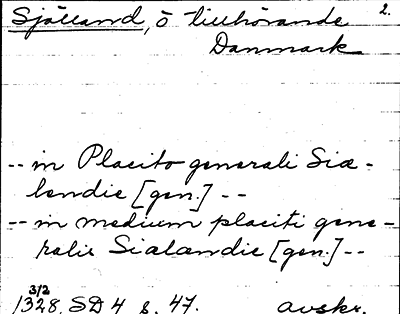 Själland, ö tillhörande 2.
Danmark
-- in Placito generali Siæ-
landie [gen.] --
-- in medium placiti gene-
ralis Sialandie [gen.] --
3/2
1328. SD 4 s. 47. avskr.